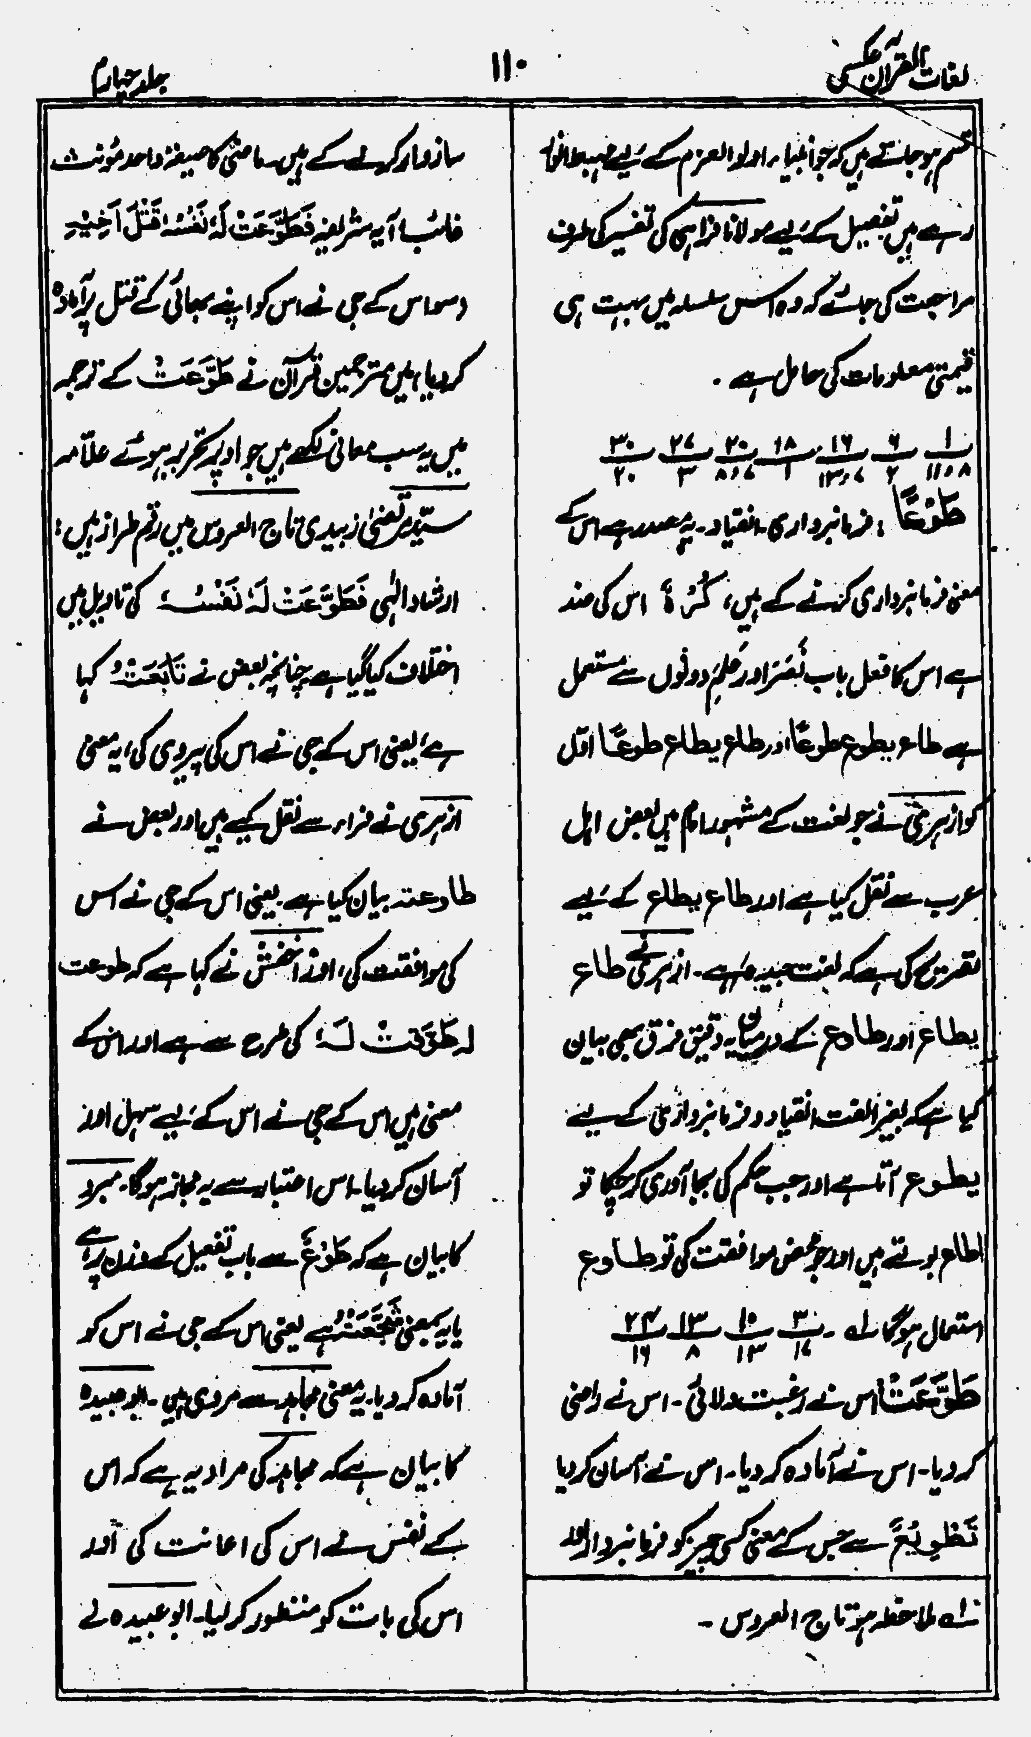 لغات القرآن عکسی
۱۱۰
جلد چہارم
قسم ہو جاتے ہیں کہ جو انبیاء اولو العزم کے لیے ضبط انوار
رہے ہیں تفصیل کے لیے مولانا فراہی کی تفسیر کی طرف
مراجعت کی جائے کہ وہ اس سلسلہ میں بہت ہی
قیمتی معلومات کی حامل ہے ۔
۱ ۶ ۱۶ ۱۸ ۲۰ ۲۷ ۳۰
۱۱،۸ ۲ ۱۳،۷ ۱ ۸،۷ ۳ ۲۰
طَوْعًا : فرمانبرداری۔ انقیاد۔ یہ مصدر ہے اس کے
معنی فرمانبرداری کرنے کے ہیں، کُرْہٌ اس کی ضد
ہے اس کا فعل باب نَصَرَ اور عَلِمَ دونوں سے مستعمل
ہے طاع یطوع طوعًا اور طاع یطاع طوعًا اوّل
کو ازہری نے جو لغت کے مشہور امام ہیں بعض اہل
عرب سے نقل کیا ہے اور طاع یطاع کے لیے
تصریح کی ہے کہ لغت جیدہ ہے۔ ازہری نے طاع
یطاع اور طاوع کے درمیان یہ دقیق فرق بھی بیان
کیا ہے کہ بغیر الفت انقیاد و فرمانبرداری کے لیے
یطوع آتا ہے اور جب حکم کی بجا آوری کر چکا تو
اطاع بولتے ہیں اور جو محض موافقت کی تو طاوع
استعمال ہوگا لہ ۔ ۳ ۱۰ ۱۳ ۲۴
۱۷ ۱۳ ۸ ۱۶
طَوَّعَتْ اس نے رغبت دلائی ۔ اس نے راضی
کر دیا۔ اس نے آمادہ کر دیا۔ اس نے آسان کر دیا
تَطْوِیْعٌ سے جس کے معنی کسی چیز کو فرمانبردار اور
لہ ملاحظہ ہو تاج العروس ۔
سازوار کرنے کے ہیں۔ ماضی کا صیغہ واحد مؤنث
غائب۔ آیہ شریفہ فَطَوَّعَتْ لَہٗ نَفْسُہٗ قَتْلَ اَخِیْہِ
(سو اس کے جی نے اس کو اپنے بھائی کے قتل پر آمادہ
کر دیا) میں مترجمین قرآن نے طَوَّعَتْ کے ترجمہ
میں یہ سب معانی لکھے ہیں جو اوپر تحریر ہوئے علّامہ
سیّد مرتضیٰ زبیدی تاج العروس میں رقم طراز ہیں:
ارشاد الٰہی فَطَوَّعَتْ لَہٗ نَفْسُہٗ، کی تاویل میں
اختلاف کیا گیا ہے چنانچہ بعض نے تَابَعَتْہُ کہا
ہے، یعنی اس کے جی نے اس کی پیروی کی، یہ معنی
ازہری نے فراء سے نقل کیے ہیں اور بعض نے
طاوعتہ بیان کیا ہے یعنی اس کے جی نے اس
کی موافقت کی، اور اخفش نے کہا ہے کہ طوعت
لہ طَوَّقَتْ لَہٗ کی طرح سے ہے اور اس کے
معنی ہیں اس کے جی نے اس کے لیے سہل اور
آسان کر دیا۔ اس اعتبار سے یہ مجاز ہوگا۔ مبرد
کا بیان ہے کہ طَوَّعَ سے باب تفعیل کے وزن پر ہے
یا یہ بمعنی شَجَّعَتْہُ ہے یعنی اس کے جی نے اس کو
آمادہ کر دیا۔ یہ معنی مجاہد سے مروی ہیں ۔ ابو عبیدہ
کا بیان ہے کہ مجاہد کی مراد یہ ہے کہ اس
کے نفس نے اس کی اعانت کی اور
اس کی بات کو منظور کر لیا۔ ابو عبیدہ نے